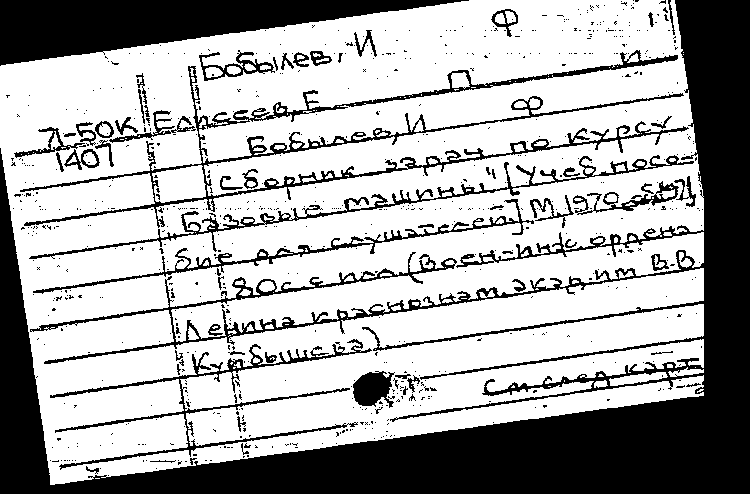 Бобылев, И Ф
71-50К Елисеев, Е П и
1407 Бобылев, И Ф
Сборник задач по курсу
"Базовые машины" [Учеб. посо-
бие для слушателей.] М, 1970
80с. с илл. (Воен-инж. ордена
Ленина краснознам. акад. им В.В.
Куйбышева)
См. след карт